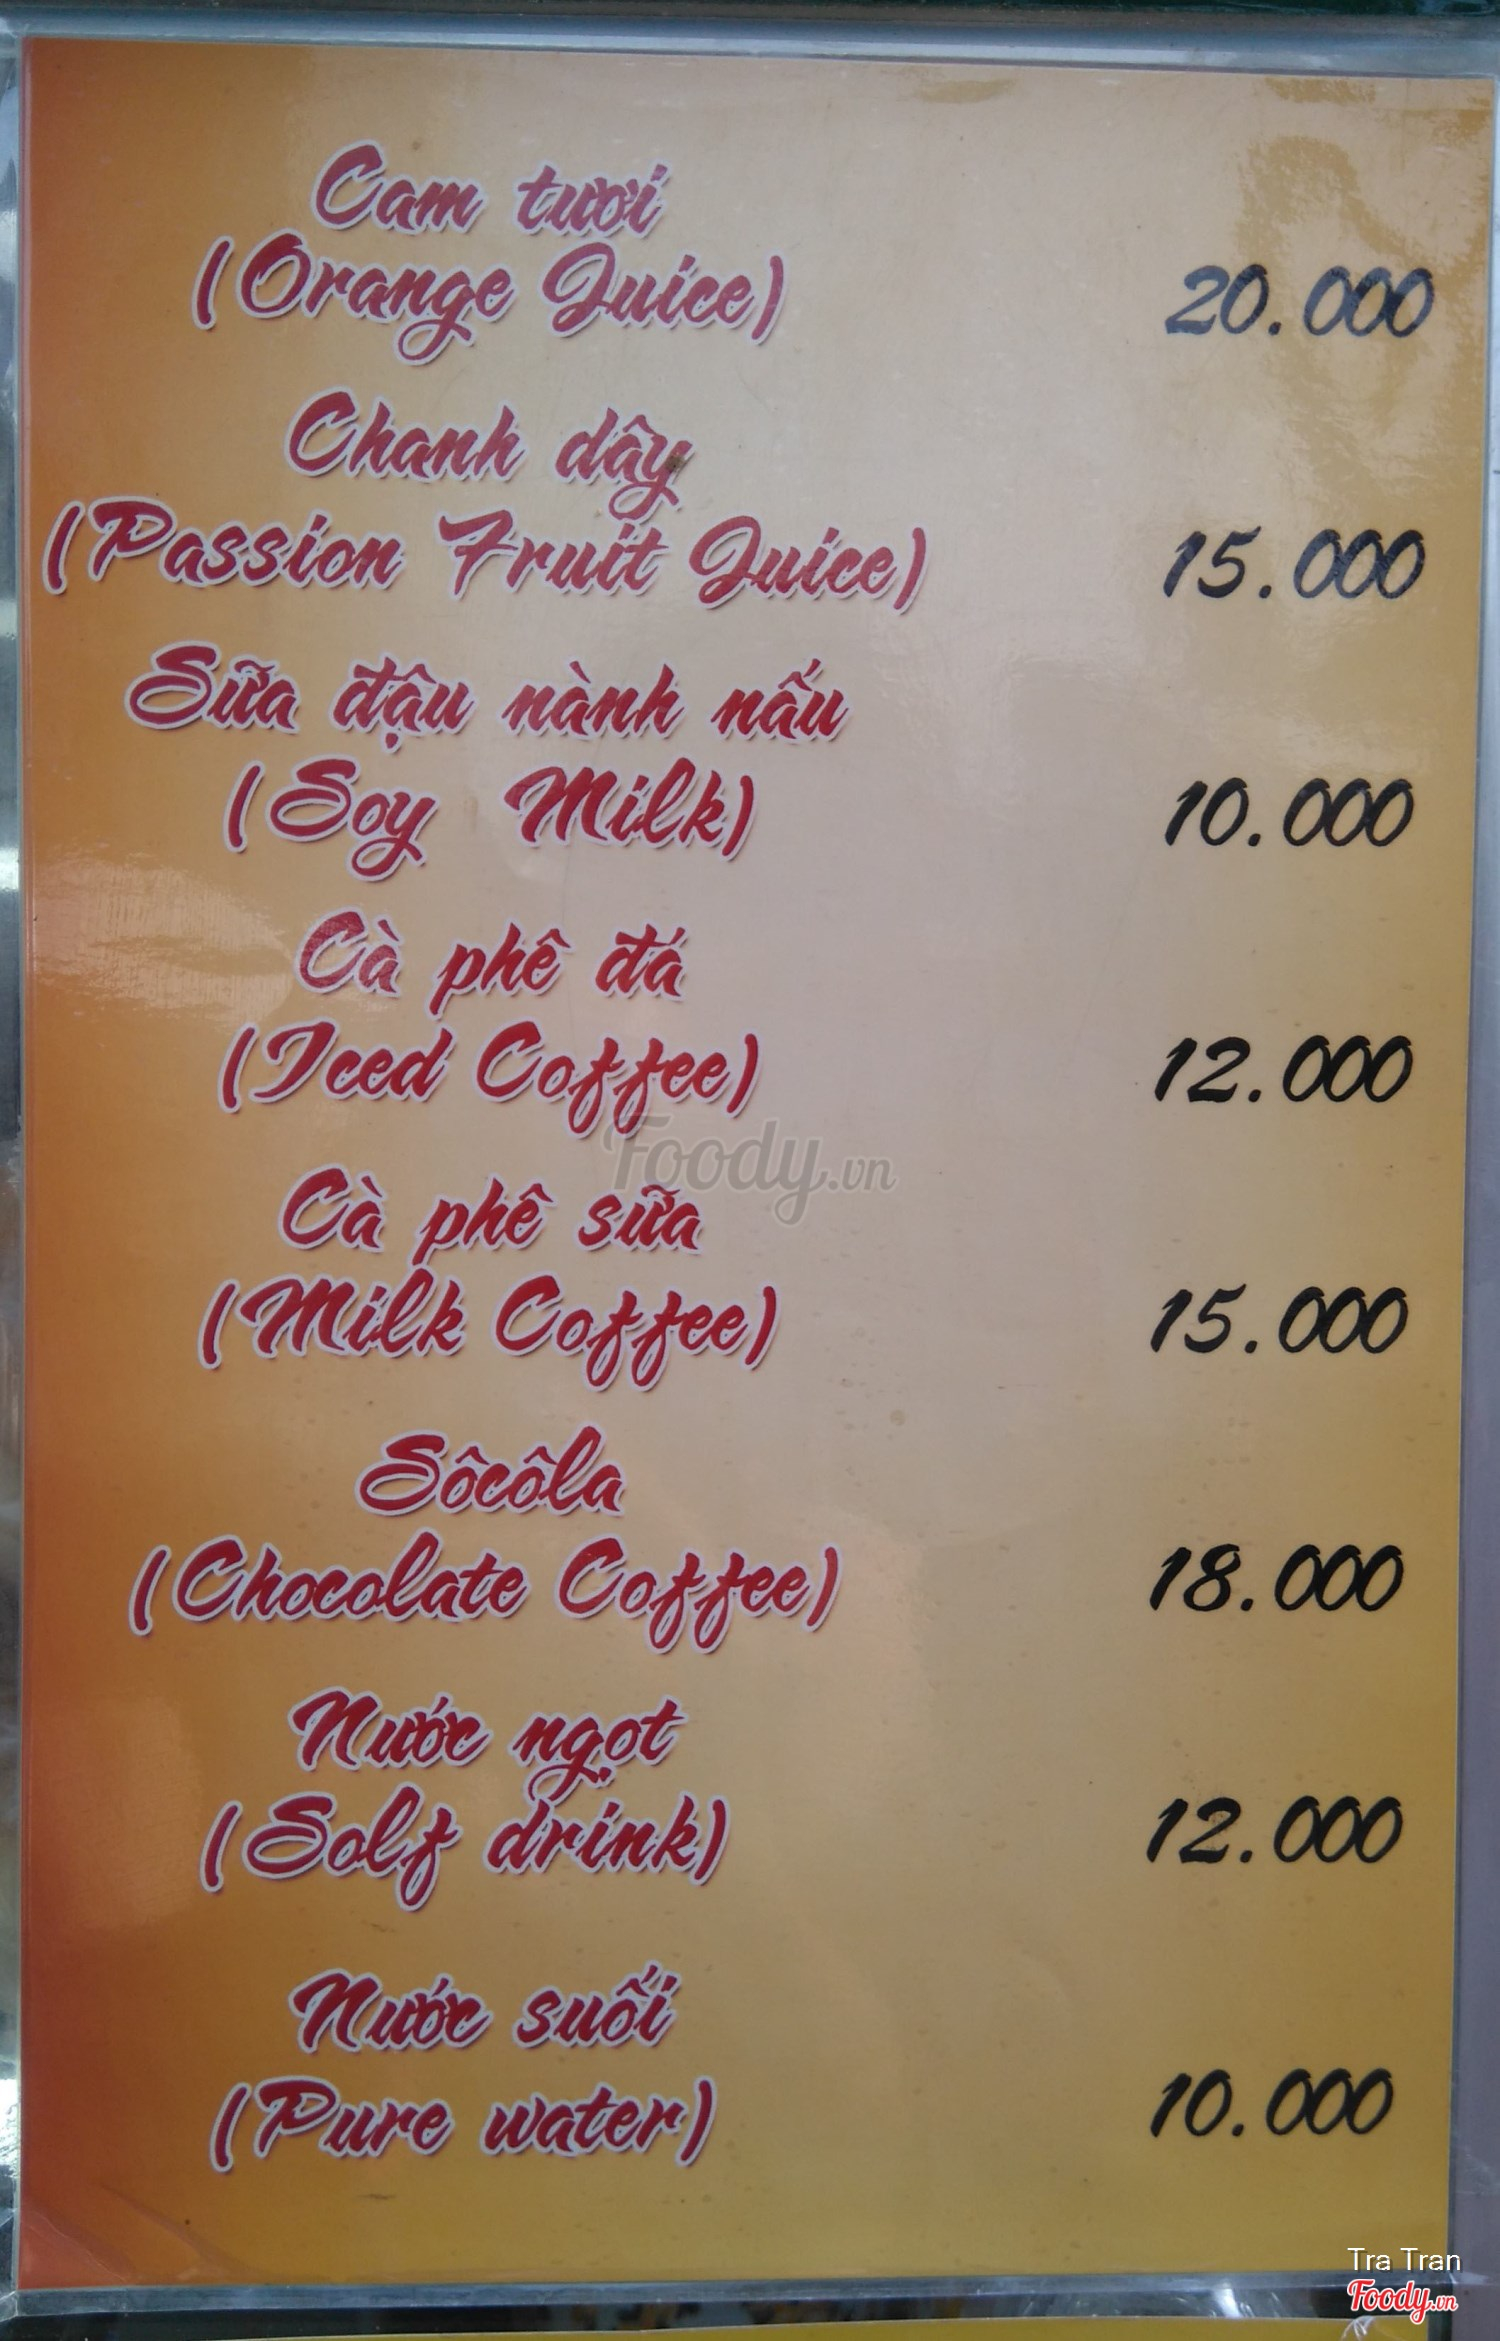 Cam tươi
(Orange Juice) 20.000
Chanh dây
(Passion Fruit Juice) 15.000
Sữa đậu nành nấu
(Soy Milk) 10.000
Cà phê đá
(Iced Coffee) 12.000
Foody.vn
Cà phê sữa
(Milk Coffee) 15.000
Sôcôla
(Chocolate Coffee) 18.000
Nước ngọt
(Solf drink) 12.000
Nước suối
(Pure water) 10.000
Tra Tran
Foody.vn